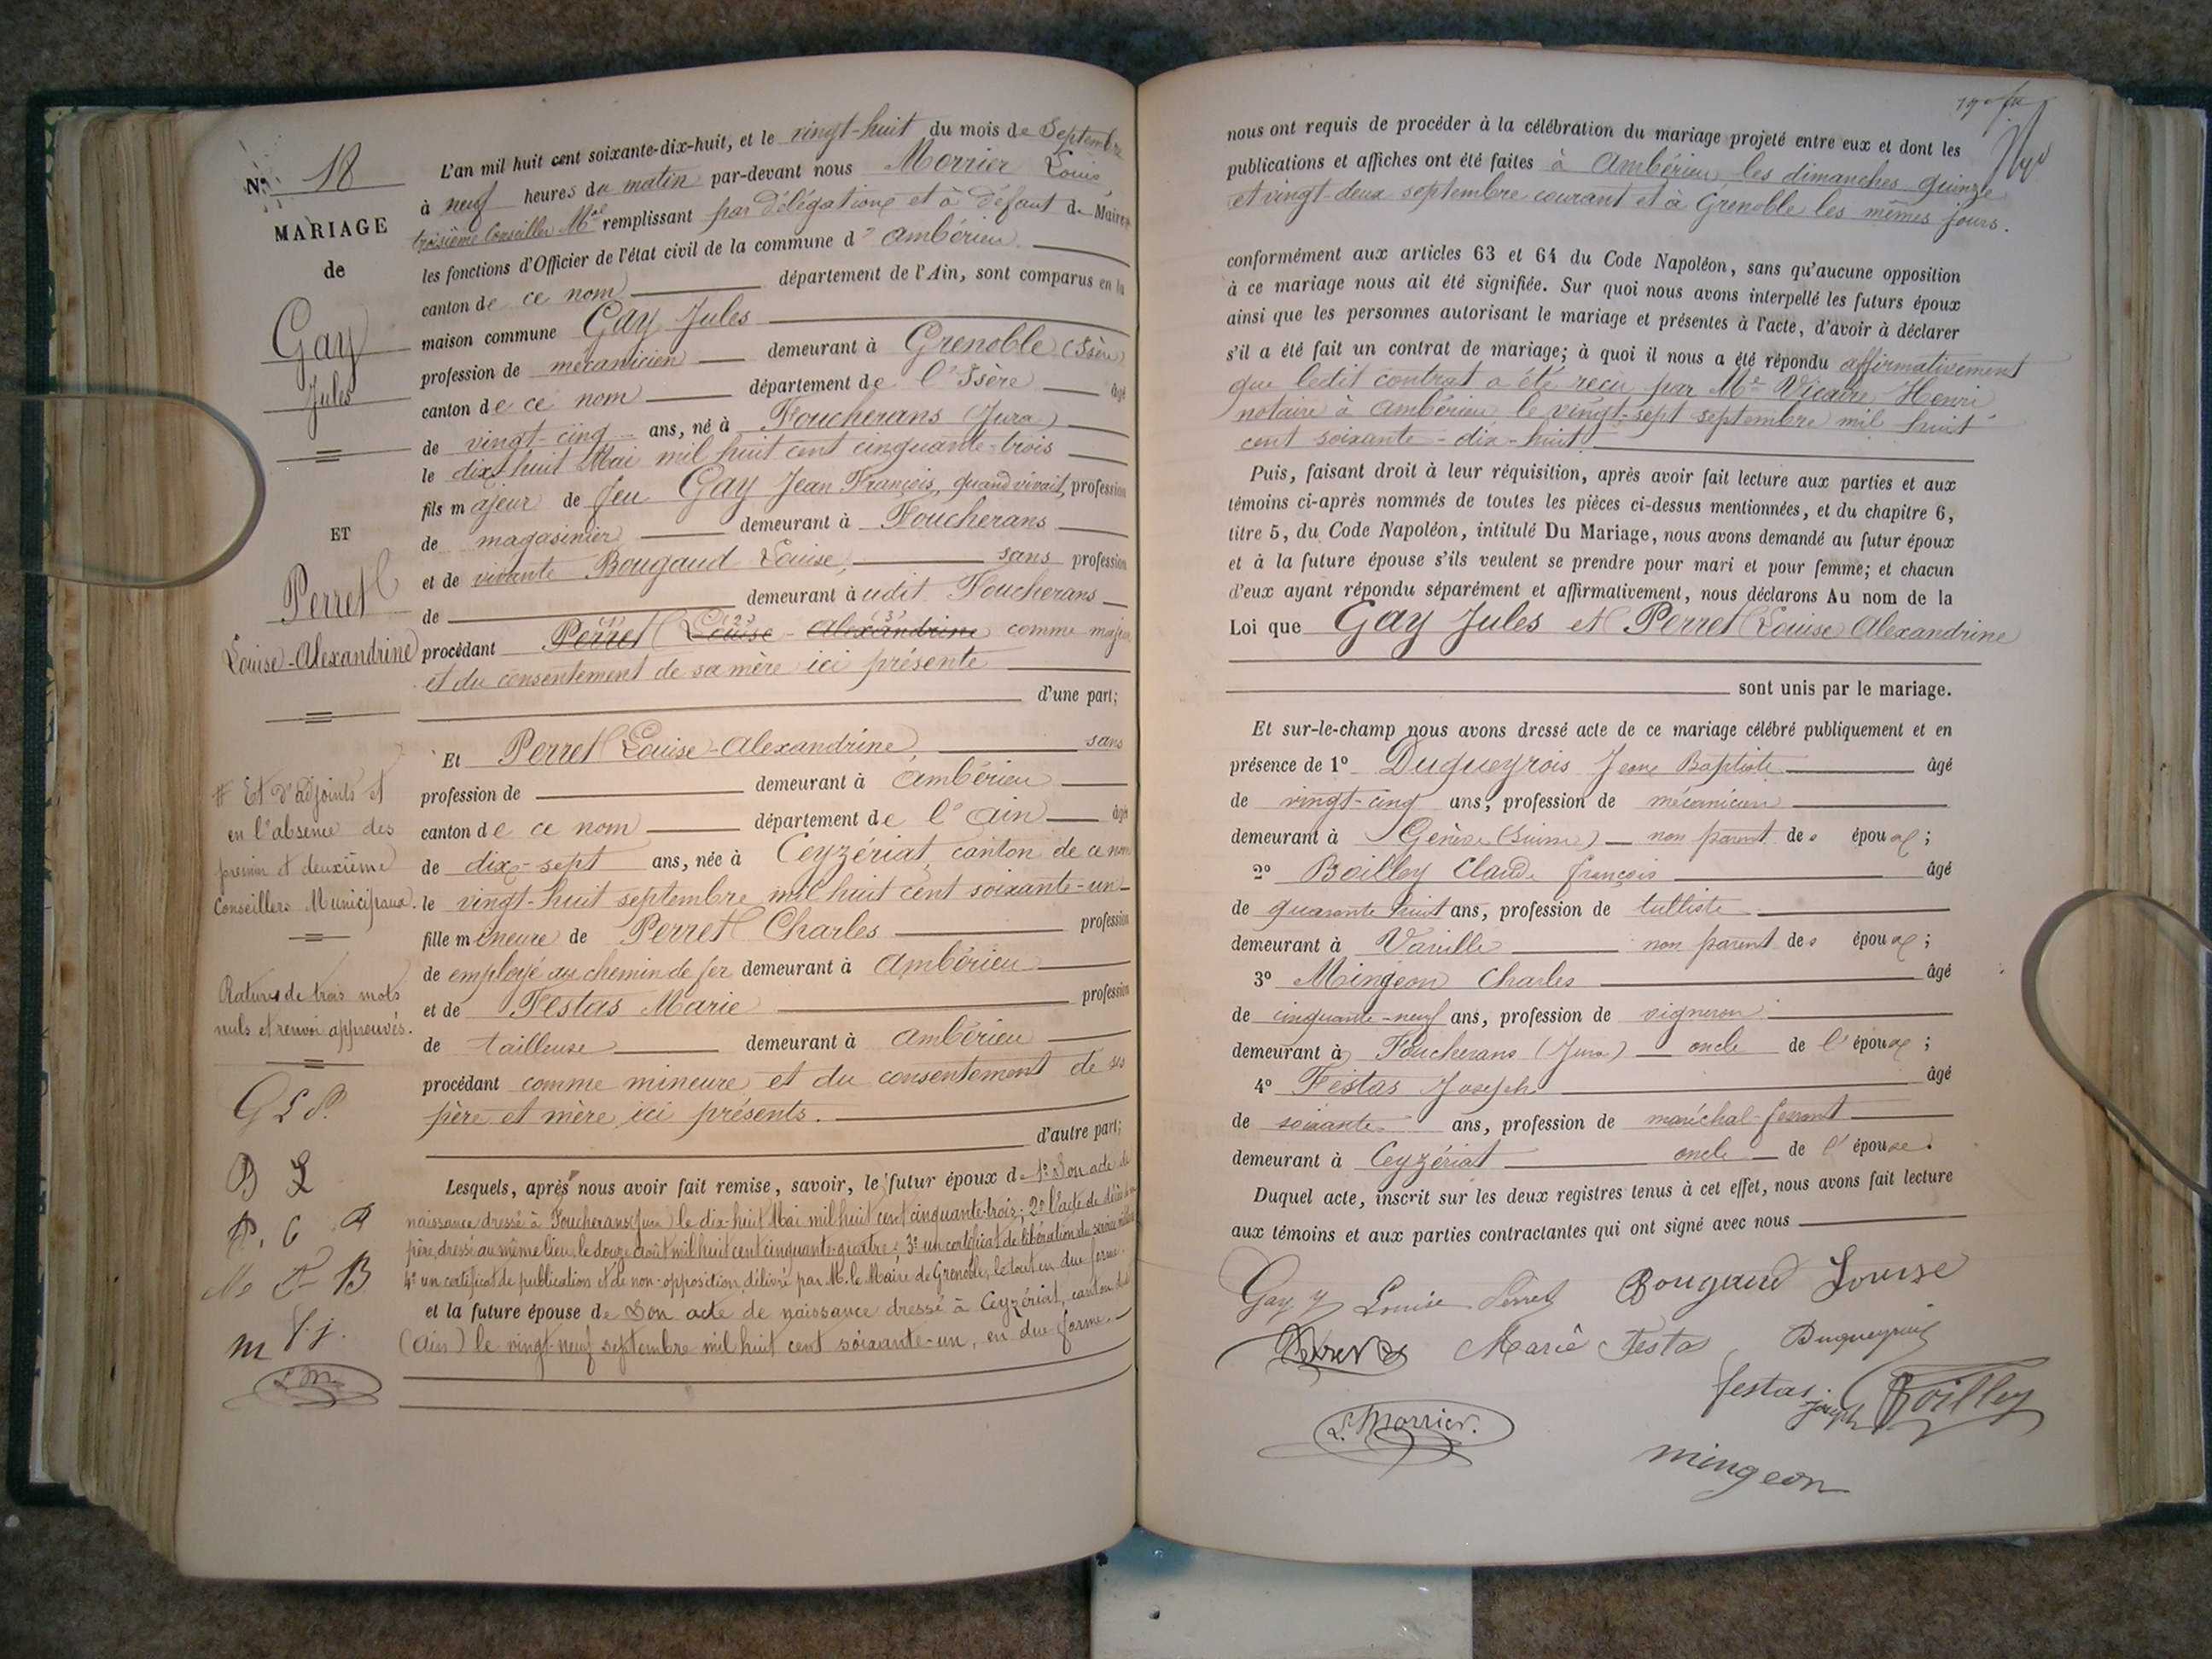 N° 18
MARIAGE
de
Gay
Jules
ET
Perret
Louise-Alexandrine
# Et d'adjoints et
en l'absence des
premier et deuxième
Conseillers Municipaux.
Rature de trois mots
nuls et renvoi approuvés.
G L P.
B L
P. C
M F B
m f. j.
L M
L'an mil huit cent soixante-dix-huit, et le vingt-huit du mois de Septembre
à neuf heures du matin par-devant nous Morrier Louis
troisième Conseiller Mal remplissant par délégation # et à défaut de Maire
les fonctions d'Officier de l'état civil de la commune d'Ambérieu
canton de ce nom département de l'Ain, sont comparus en la
maison commune Gay Jules
profession de mécanicien demeurant à Grenoble (Isère)
canton de ce nom département de l'Isère âgé
de vingt-cinq ans, né à Foucherans (Jura)
le dix-huit Mai mil huit cent cinquante-trois
fils majeur de feu Gay Jean François, quand vivait, profession
de magasinier demeurant à Foucherans
et de vivante Bougaud Louise, sans profession
de demeurant à udit Foucherans
procédant Perret Louise-Alexandrine comme majeur
et du consentement de sa mère ici présente
d'une part;
Et Perret Louise-Alexandrine sans
profession de demeurant à Ambérieu
canton de ce nom département de l'Ain âgée
de dix-sept ans, née à Ceyzériat, canton de ce nom
le vingt-huit septembre mil huit cent soixante-un
fille mineure de Perret Charles profession
de employé au chemin de fer demeurant à Ambérieu
et de Festas Marie profession
de tailleuse demeurant à Ambérieu
procédant comme mineure et du consentement de ses
père et mère ici présents.
d'autre part;
Lesquels, après nous avoir fait remise, savoir, le futur époux de 1° Son acte de
naissance dressé à Foucherans (Jura) le dix-huit Mai mil huit cent cinquante-trois; 2° l'acte de décès de son
père, dressé au même lieu, le douze août mil huit cent cinquante-quatre; 3° un certificat de libération du service militaire
4° un certificat de publication et de non-opposition délivré par M. le Maire de Grenoble, le tout en due forme.
et la future épouse de Son acte de naissance dressé à Ceyzériat, canton dudit
(Ain) le vingt-neuf septembre mil huit cent soixante-un, en due forme.
nous ont requis de procéder à la célébration du mariage projeté entre eux et dont les
publications et affiches ont été faites à Ambérieu les dimanches quinze
et vingt-deux septembre courant et à Grenoble les mêmes jours.
conformément aux articles 63 et 64 du Code Napoléon, sans qu'aucune opposition
à ce mariage nous ait été signifiée. Sur quoi nous avons interpellé les futurs époux
ainsi que les personnes autorisant le mariage et présentes à l'acte, d'avoir à déclarer
s'il a été fait un contrat de mariage; à quoi il nous a été répondu affirmativement
que ledit contrat a été reçu par Me Vicaire Henri
notaire à Ambérieu le vingt-sept septembre mil huit
cent soixante-dix-huit.
Puis, faisant droit à leur réquisition, après avoir fait lecture aux parties et aux
témoins ci-après nommés de toutes les pièces ci-dessus mentionnées, et du chapitre 6,
titre 5, du Code Napoléon, intitulé Du Mariage, nous avons demandé au futur époux
et à la future épouse s'ils veulent se prendre pour mari et pour femme; et chacun
d'eux ayant répondu séparément et affirmativement, nous déclarons Au nom de la
Loi que Gay Jules et Perret Louise Alexandrine
sont unis par le mariage.
Et sur-le-champ nous avons dressé acte de ce mariage célébré publiquement et en
présence de 1° Duqueyrois Jean Baptiste âgé
de vingt-cinq ans, profession de mécanicien
demeurant à Genève (Suisse) non parent des époux;
2° Boilley Claude françois âgé
de quarante huit ans, profession de tulliste
demeurant à non parent des époux;
3° Mingeon Charles âgé
de cinquante-neuf ans, profession de vigneron
demeurant à Foucherans (Jura) oncle de l'époux;
4° Festas Joseph âgé
de soixante ans, profession de maréchal-ferrant
demeurant à Ceyzériat oncle de l'épouse.
Duquel acte, inscrit sur les deux registres tenus à cet effet, nous avons fait lecture
aux témoins et aux parties contractantes qui ont signé avec nous
Gay J Louise Perret Bougaud Louise
Perret Marie Festas Duqueyrois
festas joseph Boilley
L. Morrier.
mingeon